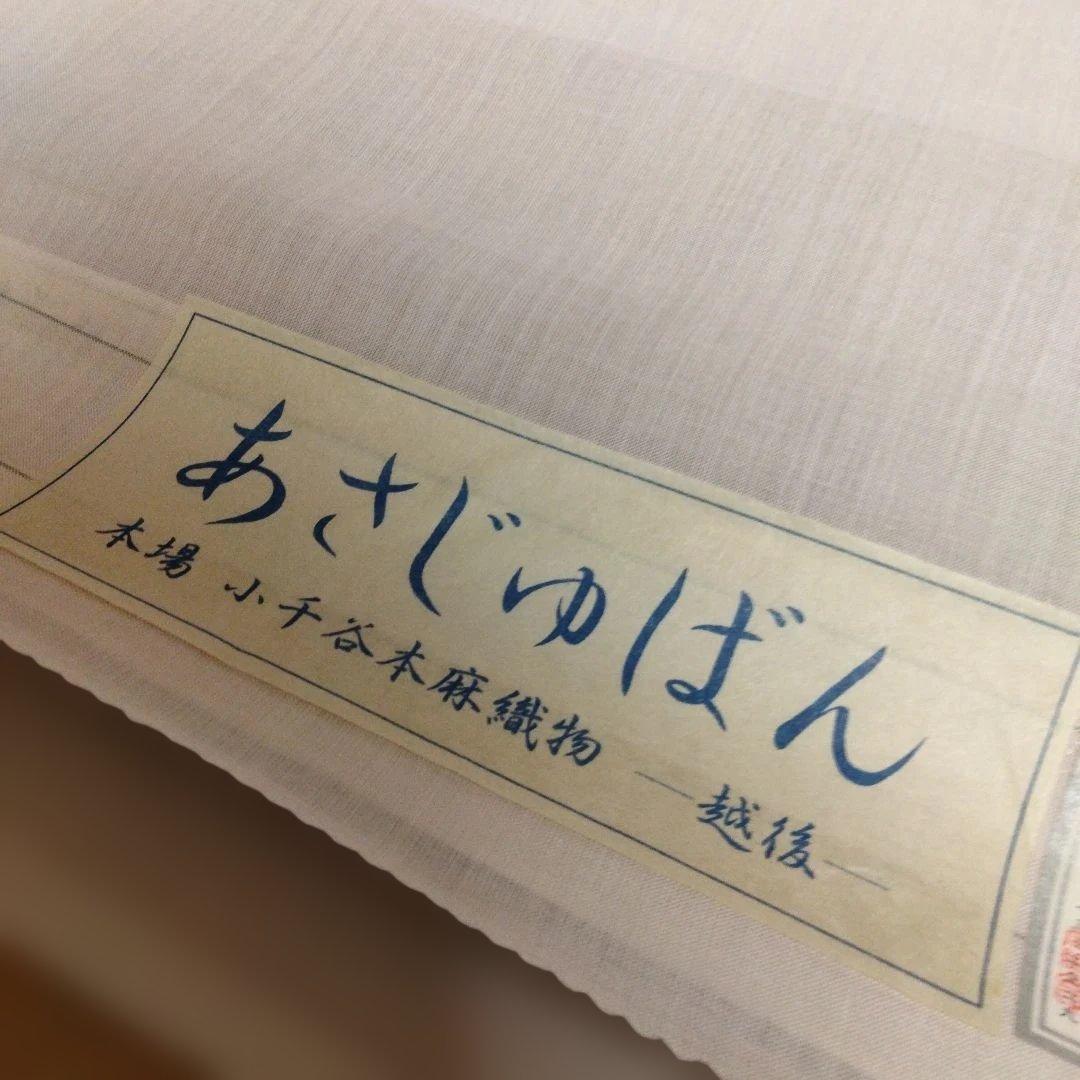 あさじゅばん
本場 小千谷本麻織物 ―越後―